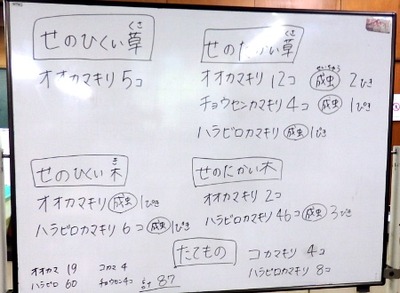 せのひくい草
くさ
オオカマキリ 5コ
せのたかい草
くさ
オオカマキリ 12コ 成虫 2ひき
せいちゅう
チョウセンカマキリ 4コ 成虫 1ぴき
ハラビロカマキリ 成虫 1ぴき
せのひくい木
き
オオカマキリ 成虫 1ぴき
ハラビロカマキリ 6コ 成虫 1ぴき
せのたかい木
オオカマキリ 2コ
ハラビロカマキリ 46コ 成虫 3びき
たてもの
コカマキリ 4コ
ハラビロカマキリ 8コ
オオカマ 19 コカマ 4
ハラビロ 60 チョウセン 4コ 87